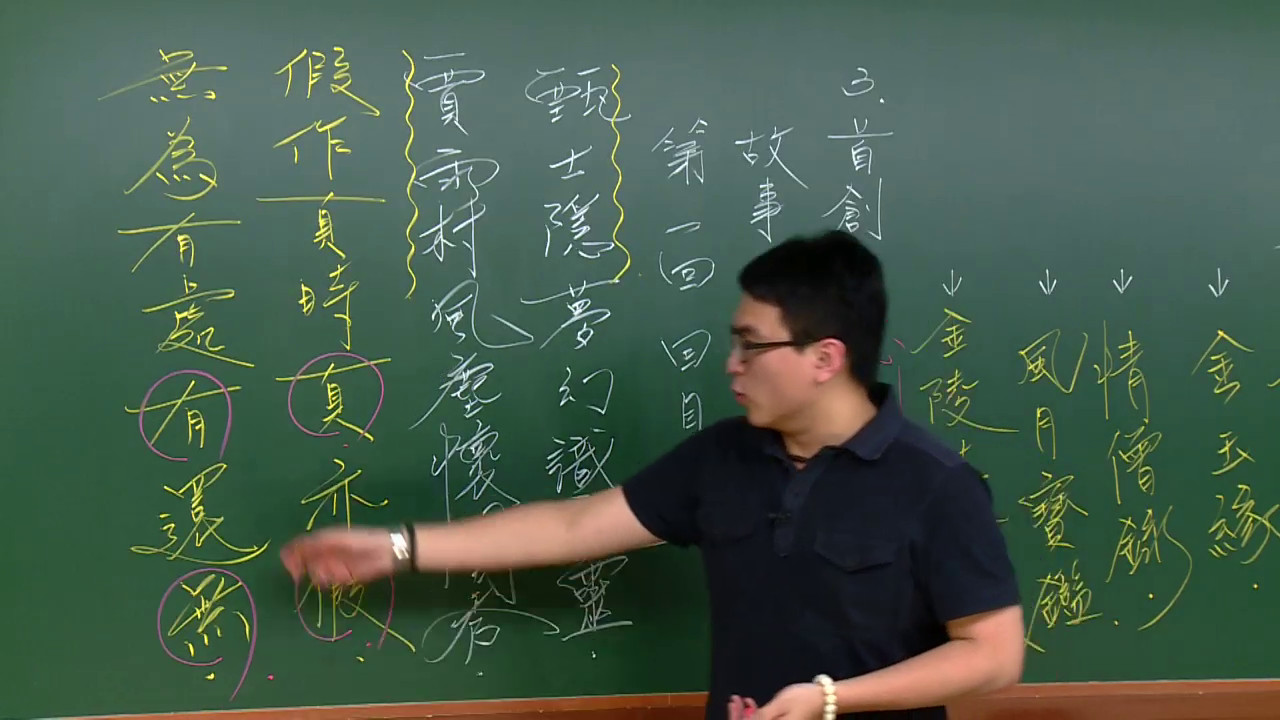 金玉緣.
情僧錄.
風月寶鑑.
金陵
3.首創
故事
第一回 回目
甄士隱夢幻識靈.
賈雨村風塵懷秀.
假作真時真亦假.
無為有處有還無.